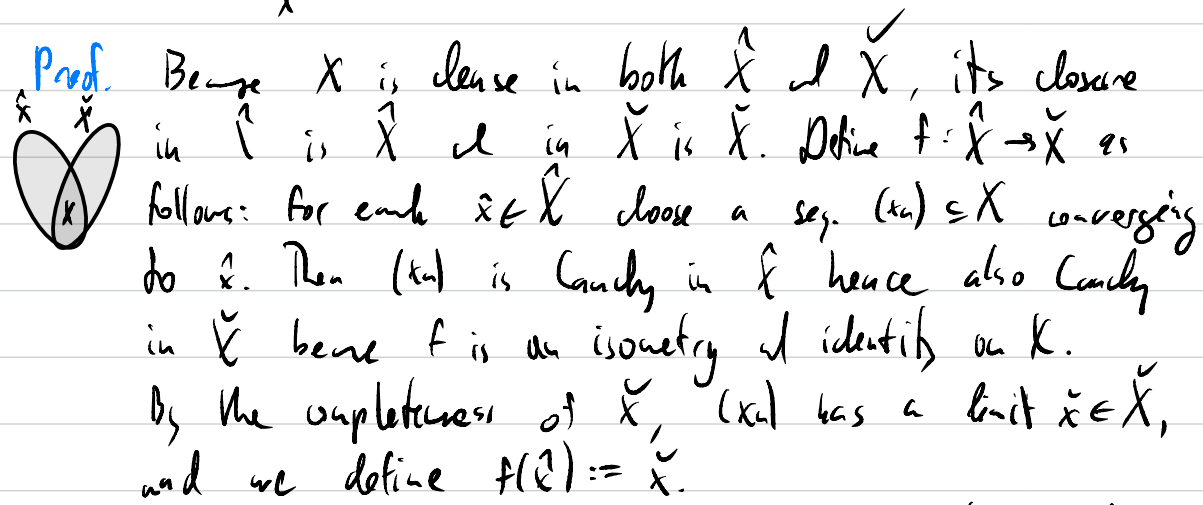 Proof. Because X is dense in both X̂ and X̌, its closure
X̂ X̌
in X̂ is X̂ and in X̌ is X̌. Define f: X̂ → X̌ as
X
follows: for each x̂ ∈ X̂ choose a seq. (xn) ⊆ X converging
to x̂. Then (xn) is Cauchy in X̂ hence also Cauchy
in X̌ because f is an isometry and identity on X.
By the completeness of X̌, (xn) has a limit x̌ ∈ X̌,
and we define f(x̂) := x̌.